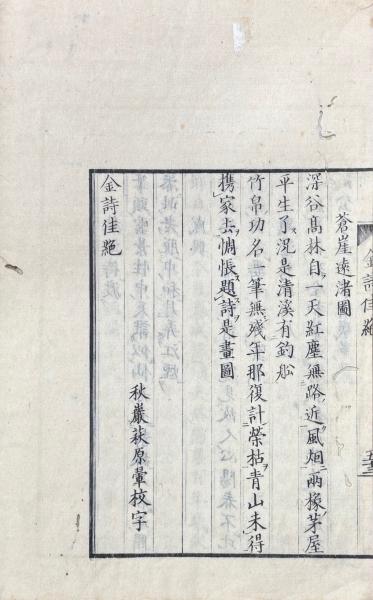 蒼崖遠渚圖
深谷高林自一天紅塵無路近風烟兩椽茅屋
平生了況是清溪有釣船
竹帛功名筆無殘年那復計榮枯青山未得
携家去惆悵題詩是畫圖
秋巖萩原翬校字
金詩佳絕